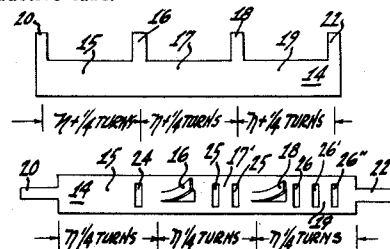 20 16 18 21
15 17 19
14
n+1/4 TURNS n+1/4 TURNS n+1/4 TURNS
20 15 24 16 25 17' 25 18 26 26' 26" 22
14 19
n 1/4 TURNS n 1/4 TURNS n 1/4 TURNS